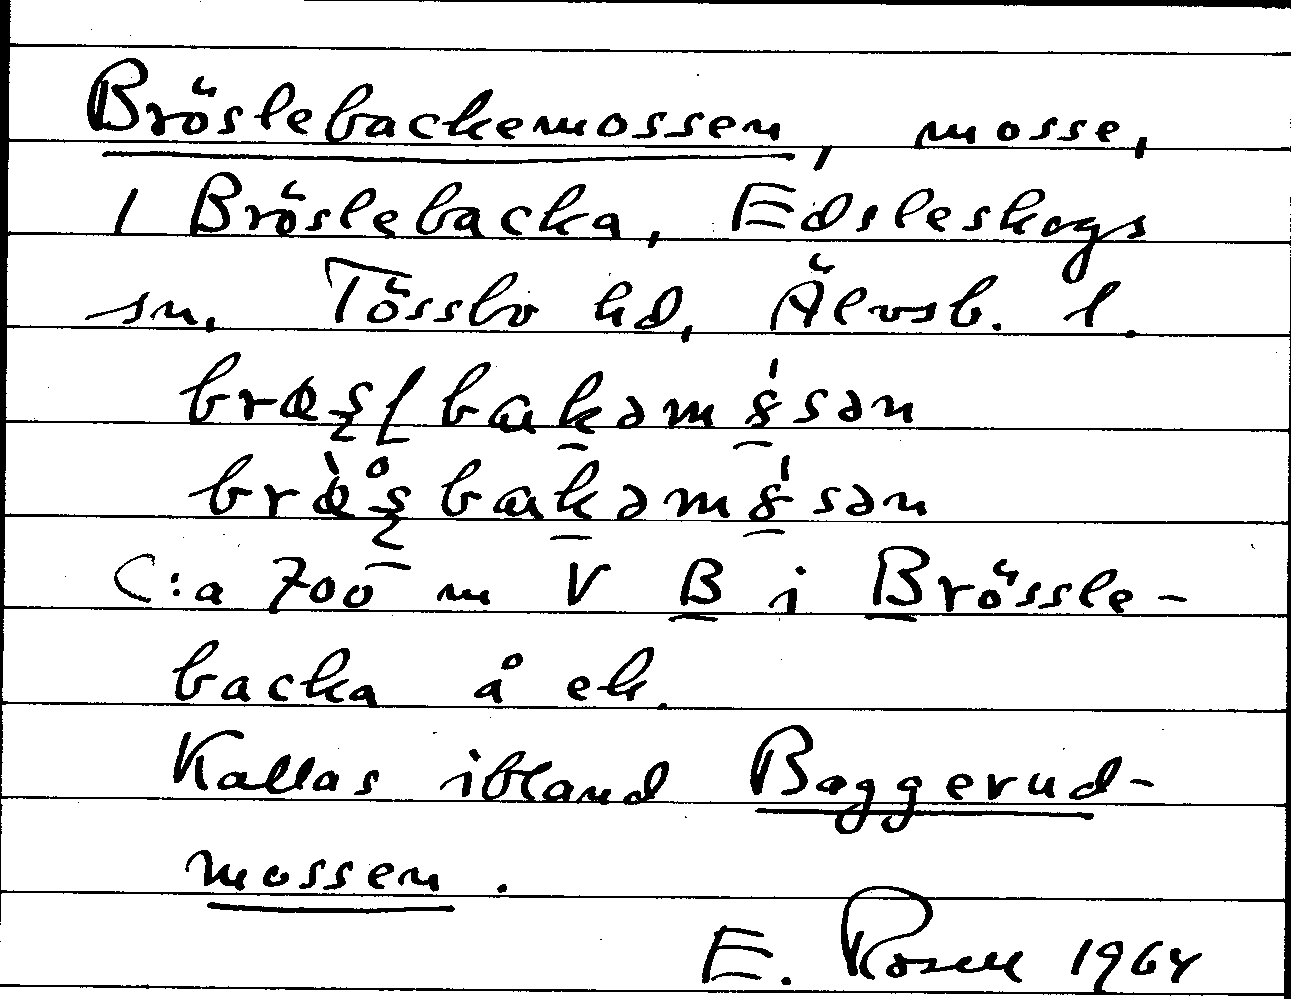 Bröslebackemossen, mosse,
1 Bröslebacka, Edsleskogs
sn, Tössbo hd, Älvsb. l.
C:a 700 m V B i Brössle-
backa å ek.
Kallas ibland Baggerud-
mossen.
E. Rosell 1964